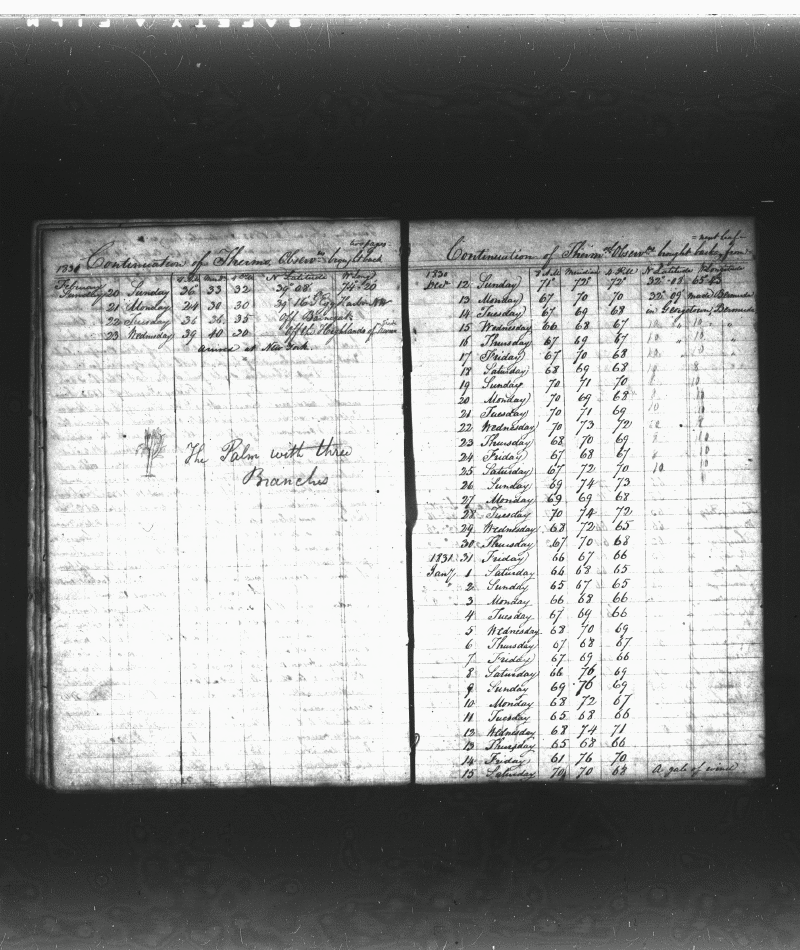 SAFETY FILM
two pages
Continuation of Therm. Observns brought back
1831
February
Sunday 20 Sunday 36 33 32 39° 08 74° 20
21 Monday 24 30 30 39 16
22 Tuesday 36 36 35 Off Barnegat
23 Wednesday 39 40 30 off the Highlands of
arrived at New York.
The Palm with three
Branches
Continuation of Therm. Observns brought back from
1830 N Latitude
Decr 12 Sunday 71° 72° 72° 32° 08 65 43
13 Monday 67 70 70 32° 09 made Bermuda
14 Tuesday 67 69 68 in Georgetown, Bermuda
15 Wednesday 66 68 67
16 Thursday 67 69 67
17 Friday 67 70 68
18 Saturday 68 69 68
19 Sunday 70 71 70
20 Monday 70 69 68
21 Tuesday 70 71 69
22 Wednesday 70 73 72
23 Thursday 68 70 69
24 Friday 67 68 67
25 Saturday 67 72 70
26 Sunday 69 74 73
27 Monday 69 69 68
28 Tuesday 70 74 72
29 Wednesday 68 72 65
30 Thursday 67 70 68
1831 31 Friday 66 67 66
Jany 1 Saturday 66 68 65
2 Sunday 65 67 65
3 Monday 66 68 66
4 Tuesday 67 69 66
5 Wednesday 68 70 69
6 Thursday 67 68 67
7 Friday 67 69 66
8 Saturday 66 76 69
9 Sunday 69 76 69
10 Monday 68 72 67
11 Tuesday 65 68 66
12 Wednesday 68 74 71
13 Thursday 65 68 66
14 Friday 61 76 70
15 Saturday 70 70 68 A gale of wind